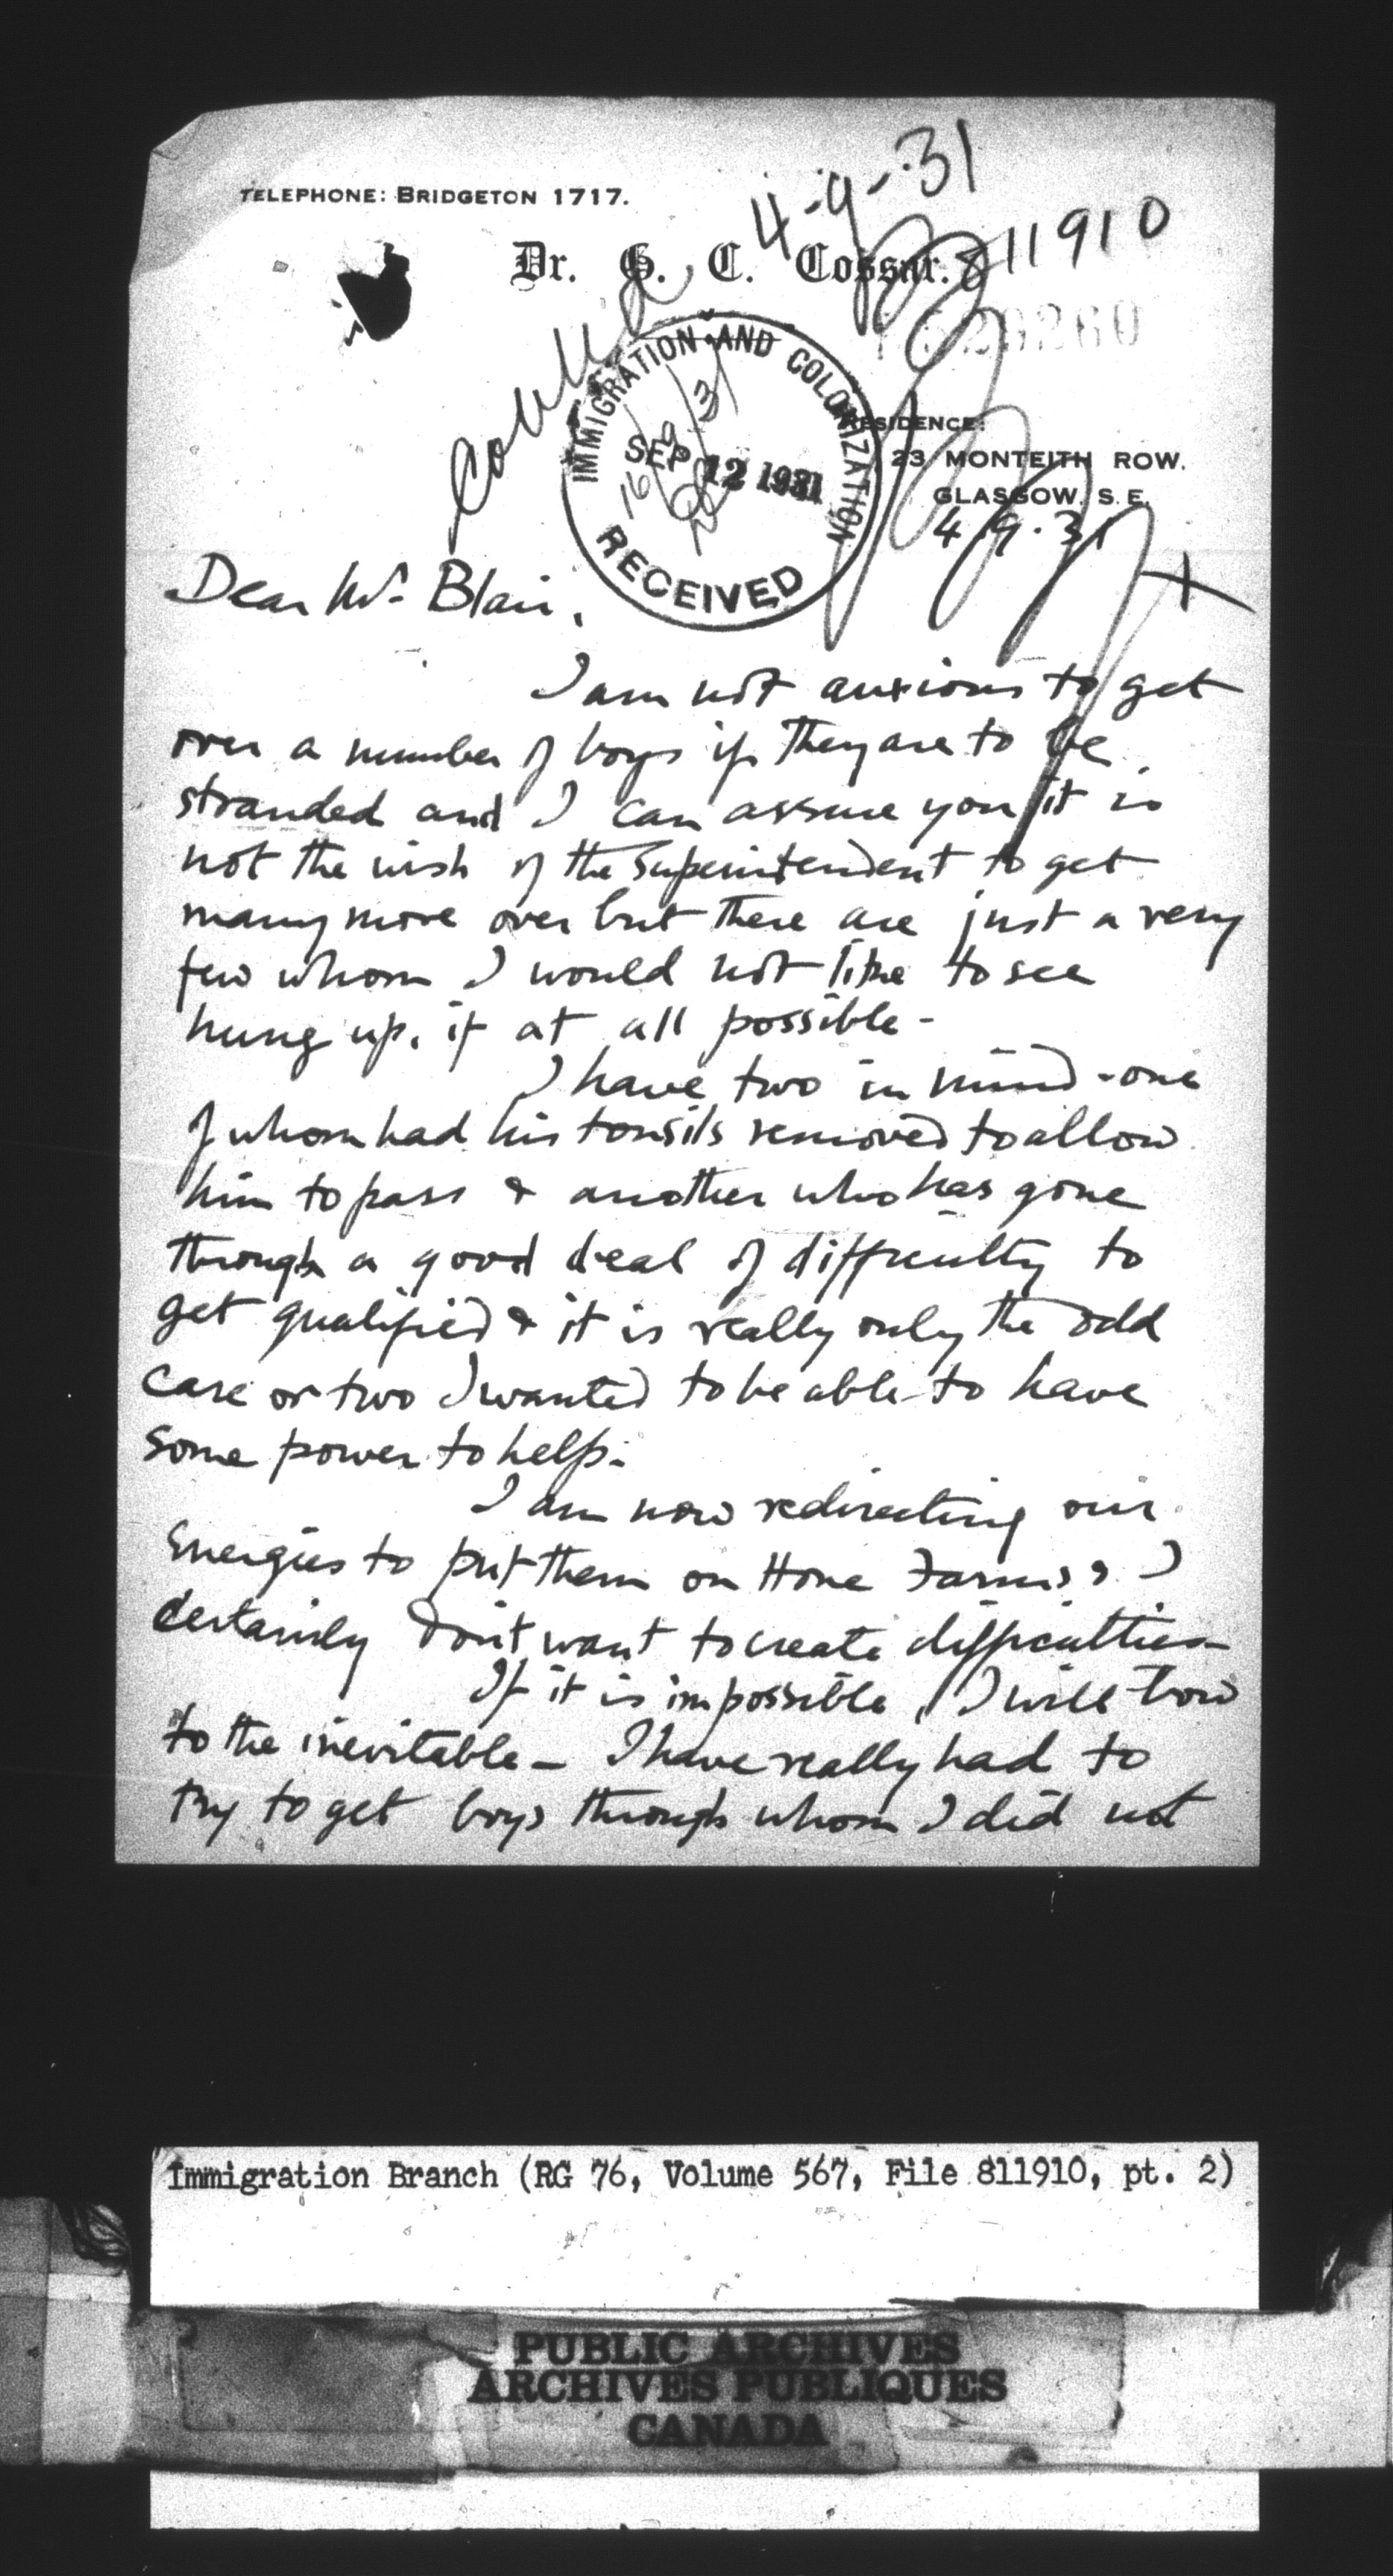 4-9-31
TELEPHONE: BRIDGETON 1717.
811910
Dr. G. C. Cossar.
IMMIGRATION AND COLONIZATION
SEP 12 1931
RECEIVED
RESIDENCE:
23 MONTEITH ROW.
GLASGOW, S.E.
4.9.31
Dear Mr Blair,
I am not anxious to get
over a number of boys if they are to be
stranded and I can assure you it is
not the wish of the Superintendent to get
many more over but there are just a very
few whom I would not like to see
hung up, if at all possible -
I have two in mind - one
of whom had his tonsils removed to allow
him to pass & another who has gone
through a good deal of difficulty to
get qualified & it is really only the odd
case or two I wanted to be able to have
some power to help.
I am now redirecting our
energies to put them on Home Farms & I
certainly don't want to create difficulties -
If it is impossible, I will bow
to the inevitable - I have really had to
try to get boys through whom I did not
Immigration Branch (RG 76, Volume 567, File 811910, pt. 2)
PUBLIC ARCHIVES
ARCHIVES PUBLIQUES
CANADA